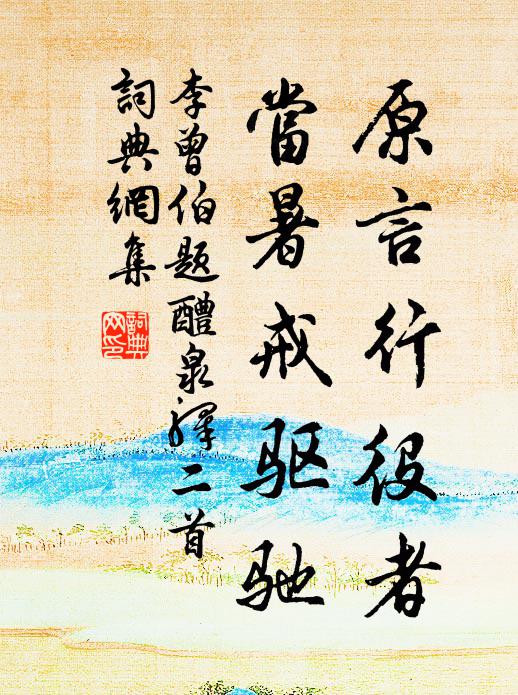 原言行役者
當暑戒驱驰
李曾伯題醴泉驛二首
詞典網集
詞典網印